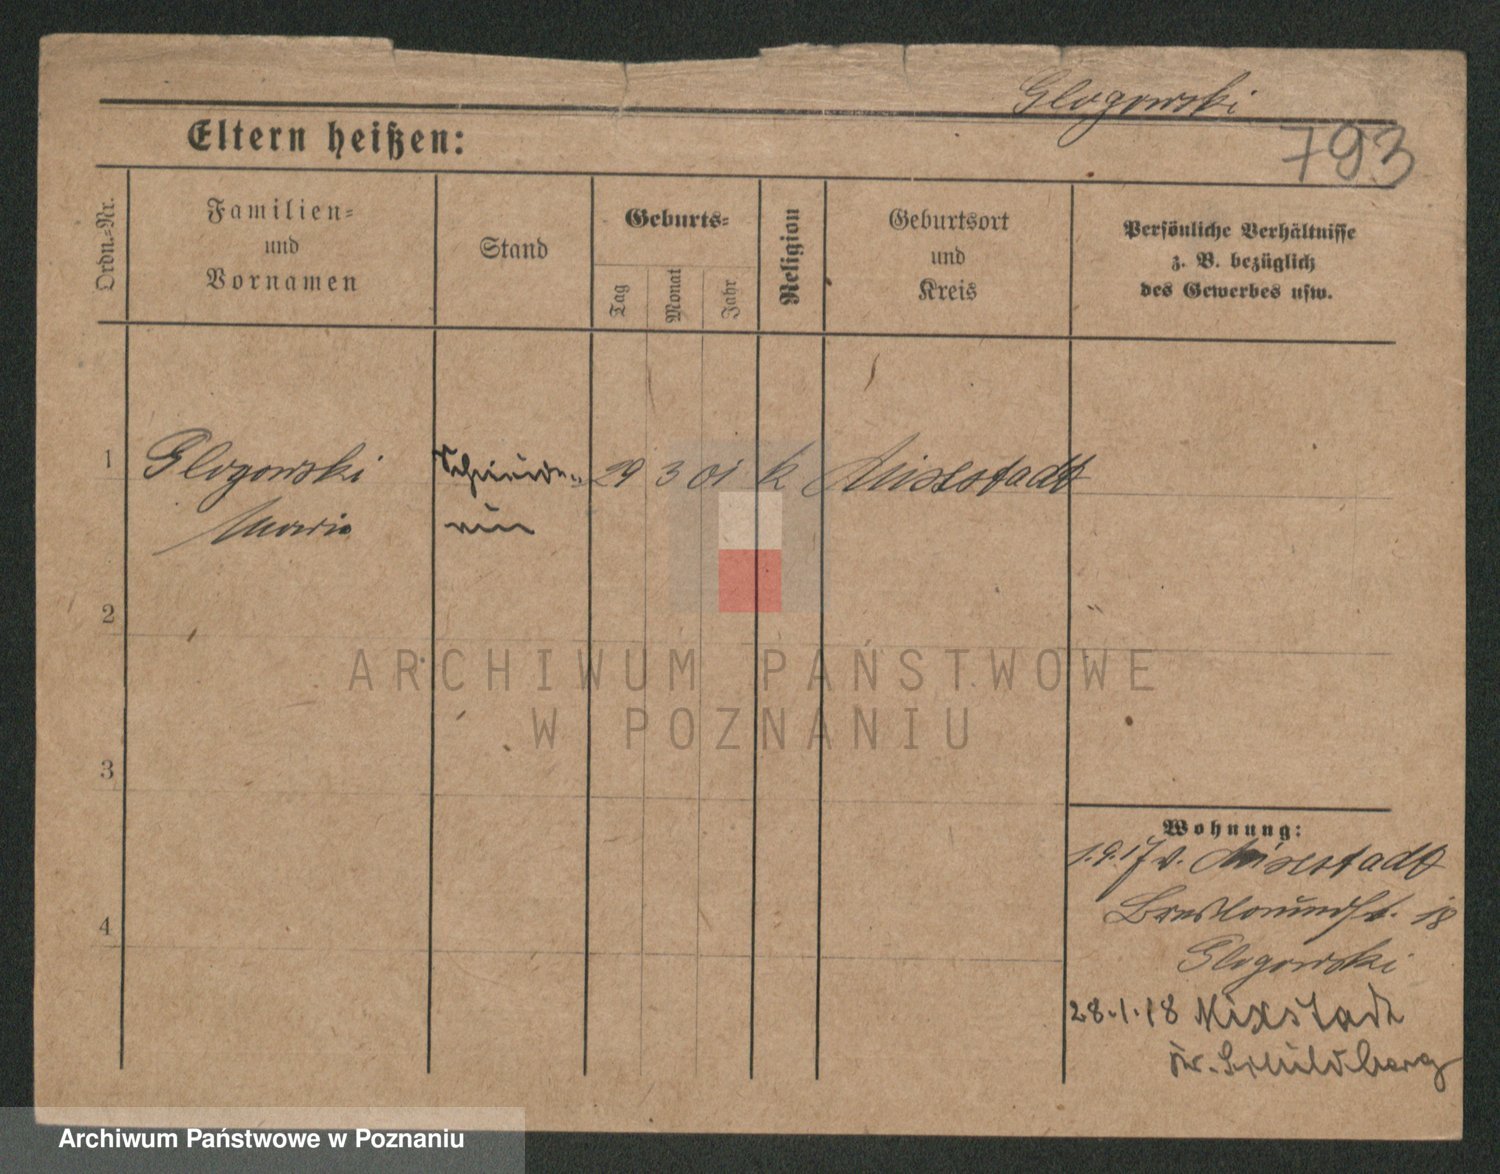 Glogowski
793
Eltern heißen:
Ordn.=Nr.
Familien=
und
Vornamen
Stand
Geburts=
Tag
Monat
Jahr
Religion
Geburtsort
und
Kreis
Persönliche Verhältnisse
z. B. bezüglich
des Gewerbes usw.
1
Glogowski
Maria
Schneide=
rin
29 3 01 k Mixstadt
2
3
4
Wohnung:
1.9.17 v. Mixstadt
18
Glogowski
28.1.18 Mixstadt
Kr. Schildberg
ARCHIWUM PAŃSTWOWE
W POZNANIU
Archiwum Państwowe w Poznaniu